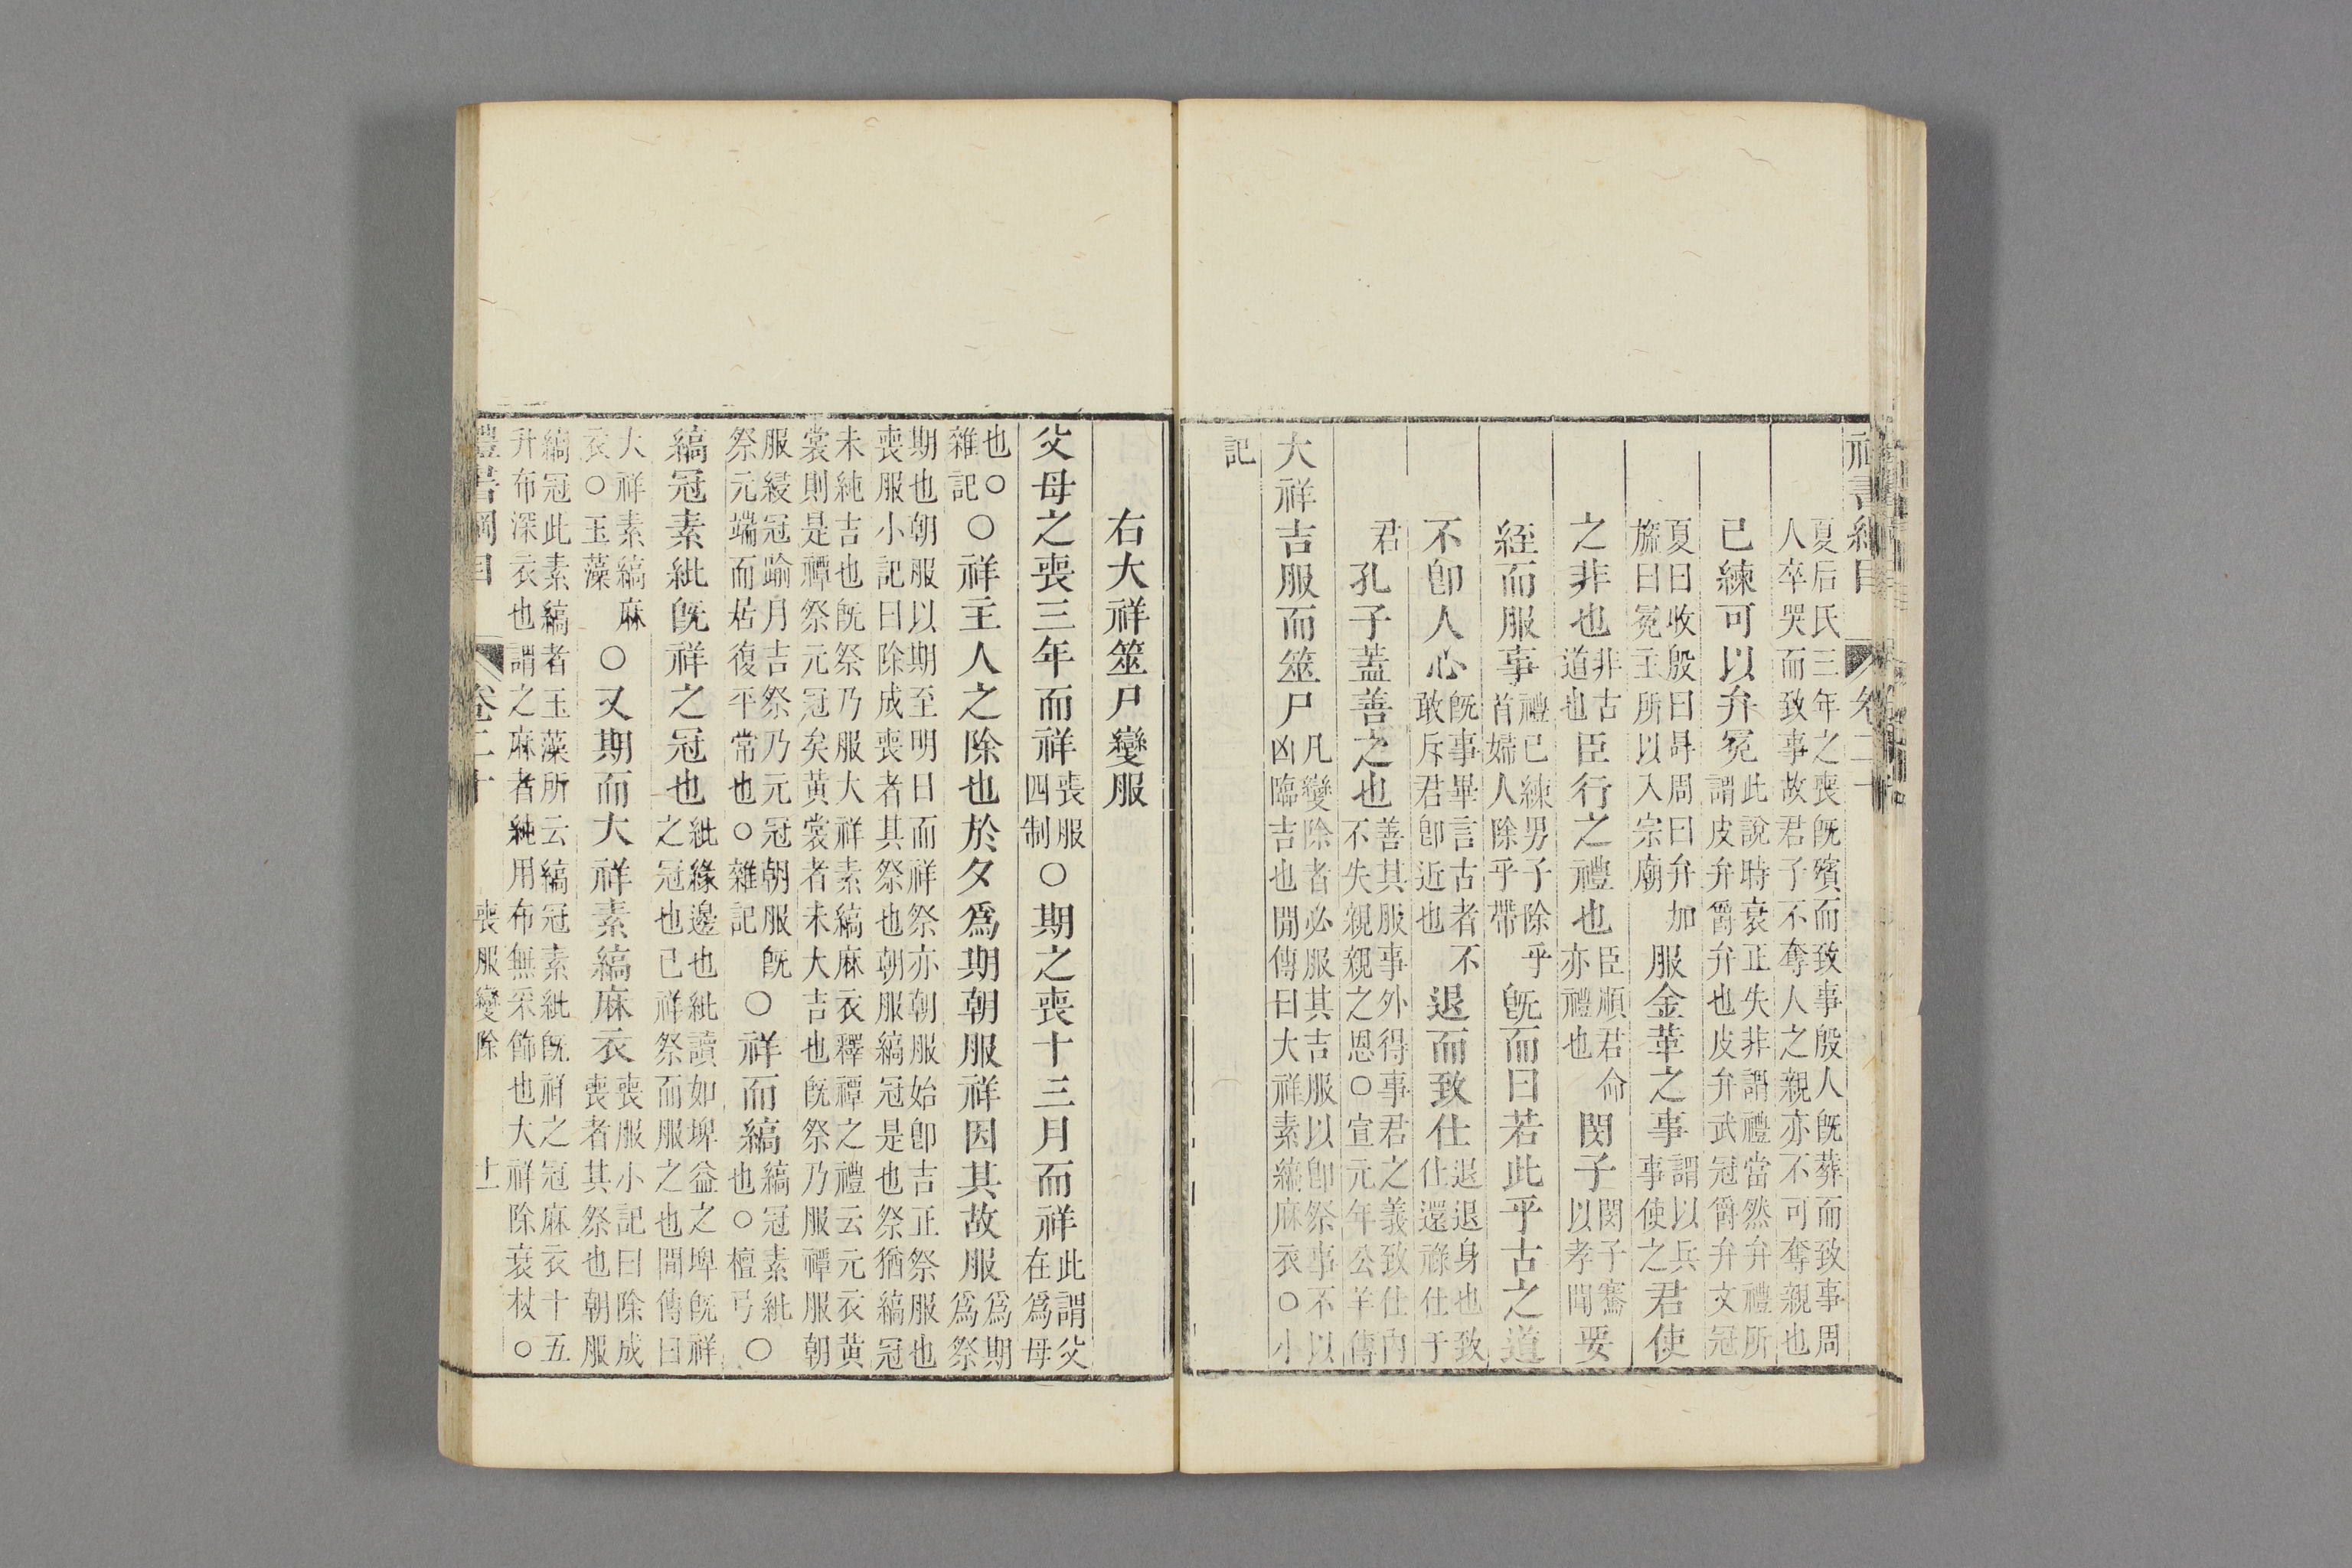 禮書綱目 卷二十
夏后氏三年之喪既殯而致事殷人既葬而致事周
人卒哭而致事故君子不奪人之親亦不可奪親也
已練可以弁冕此說時衰正失非謂禮當然弁禮所謂皮弁爵弁也皮弁武冠爵弁文冠
夏曰收殷曰冔周曰弁加旒曰冕主所以入宗廟服金革之事謂以兵事使之君使
之非也非古道也臣行之禮也臣順君命亦禮也閔子閔子騫以孝聞要
絰而服事禮已練男子除乎首婦人除乎帶既而曰若此乎古之道
不卽人心既事畢言古者不敢斥君卽近也退而致仕退退身也致仕還祿仕于
君孔子蓋善之也善其服事外得事君之義致仕內不失親親之恩○宣元年公羊傳
大祥吉服而筮尸凡變除者必服其吉服以卽祭事不以凶臨吉也閒傳曰大祥素縞麻衣○小
記
右大祥筮尸變服
父母之喪三年而祥喪服四制○期之喪十三月而祥此謂父在爲母
也○雜記○祥主人之除也於夕爲期朝服祥因其故服爲期爲祭
期也朝服以期至明日而祥祭亦朝服始卽吉正祭服也
喪服小記曰除成喪者其祭也朝服縞冠是也祭猶縞冠
未純吉也既祭乃服大祥素縞麻衣釋禫之禮云元衣黃
裳則是禫祭元冠矣黃裳者未大吉也既祭乃服禫服朝
服綅冠踰月吉祭乃元冠朝服既祭元端而居復平常也○雜記○祥而縞縞冠素紕也○檀弓○
縞冠素紕既祥之冠也紕緣邊也紕讀如埤益之埤既祥之冠也已祥祭而服之也閒傳曰
大祥素縞麻衣○玉藻○又期而大祥素縞麻衣喪服小記曰除成喪者其祭也朝服
縞冠此素縞者玉藻所云縞冠素紕既祥之冠麻衣十五
升布深衣也謂之麻者純用布無采飾也大祥除衰杖○
禮書綱目 卷二十 喪服變除 十一